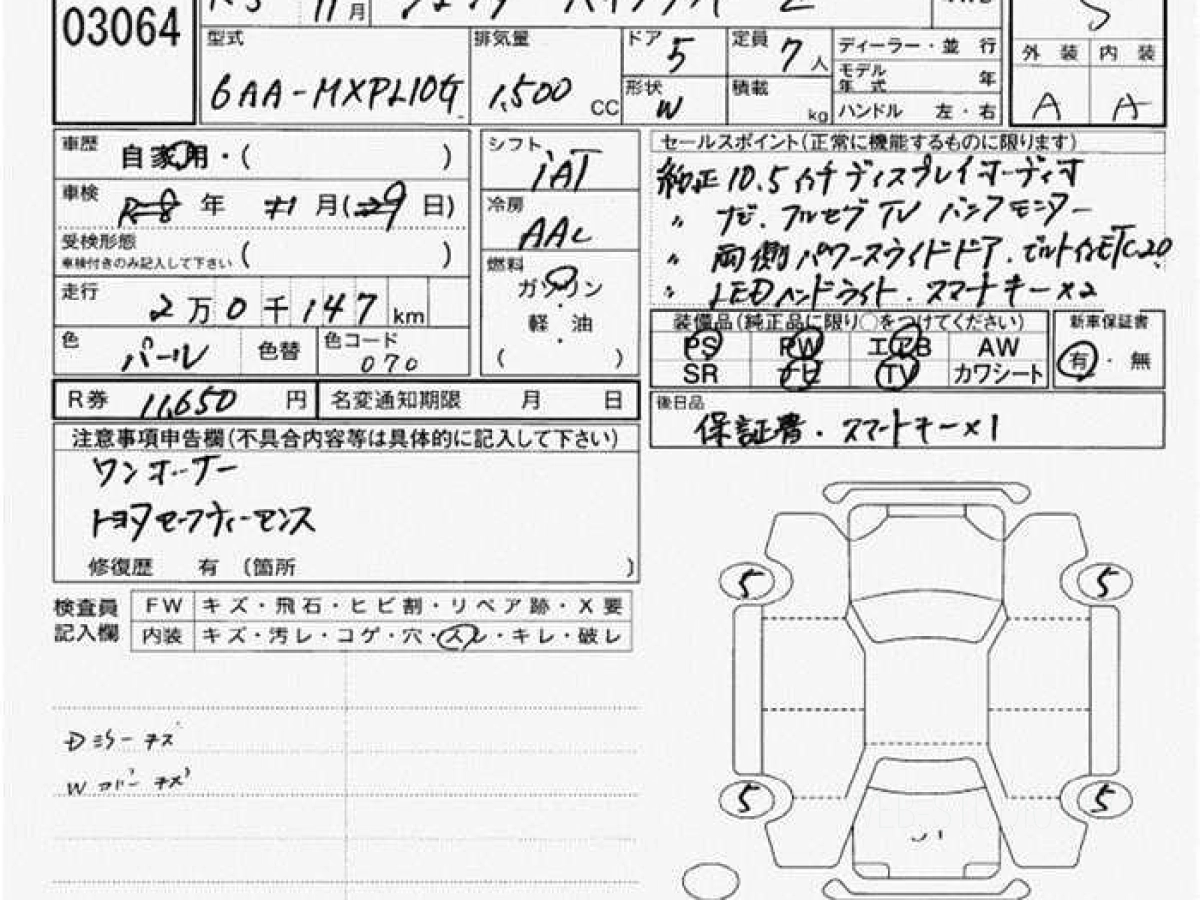 03064
R5 11月 シエンタ ハイブリッド Z
型式 6AA-MXPL10G
排気量 1,500 CC
ドア 5
定員 7 人
形状 W
積載 kg
ディーラー・並 行
モデル年式 年
ハンドル 左・右
S
外 装 内 装
A A
車歴 自家用・( )
車検 R=8 年 11 月(29 日)
受検形態
車検付きのみ記入して下さい ( )
走行 2万0千147 km
色 パール 色替 色コード 070
シフト IAT
冷房 AAC
燃料 ガソリン・軽 油・( )
セールスポイント(正常に機能するものに限ります)
純正10.5インチディスプレイオーディオ
〃 ナビ.フルセグTV バックモニター
〃 両側パワースライドドア.ビルトインETC2.0
〃 LEDヘッドライト.スマートキー×2
装備品(純正品に限り○をつけてください)
PS PW エアB AW
SR ナビ TV カワシート
新車保証書
有・無
R券 11,650 円 名変通知期限 月 日
後日品
保証書.スマートキー×1
注意事項申告欄(不具合内容等は具体的に記入して下さい)
ワンオーナー
トヨタセーフティーセンス
修復歴 有 (箇所 )
検査員記入欄
FW キズ・飛石・ヒビ割・リペア跡・X要
内装 キズ・汚レ・コゲ・穴・スレ・キレ・破レ
Dミラーキズ
Wカバーキズ
5 5
5 5